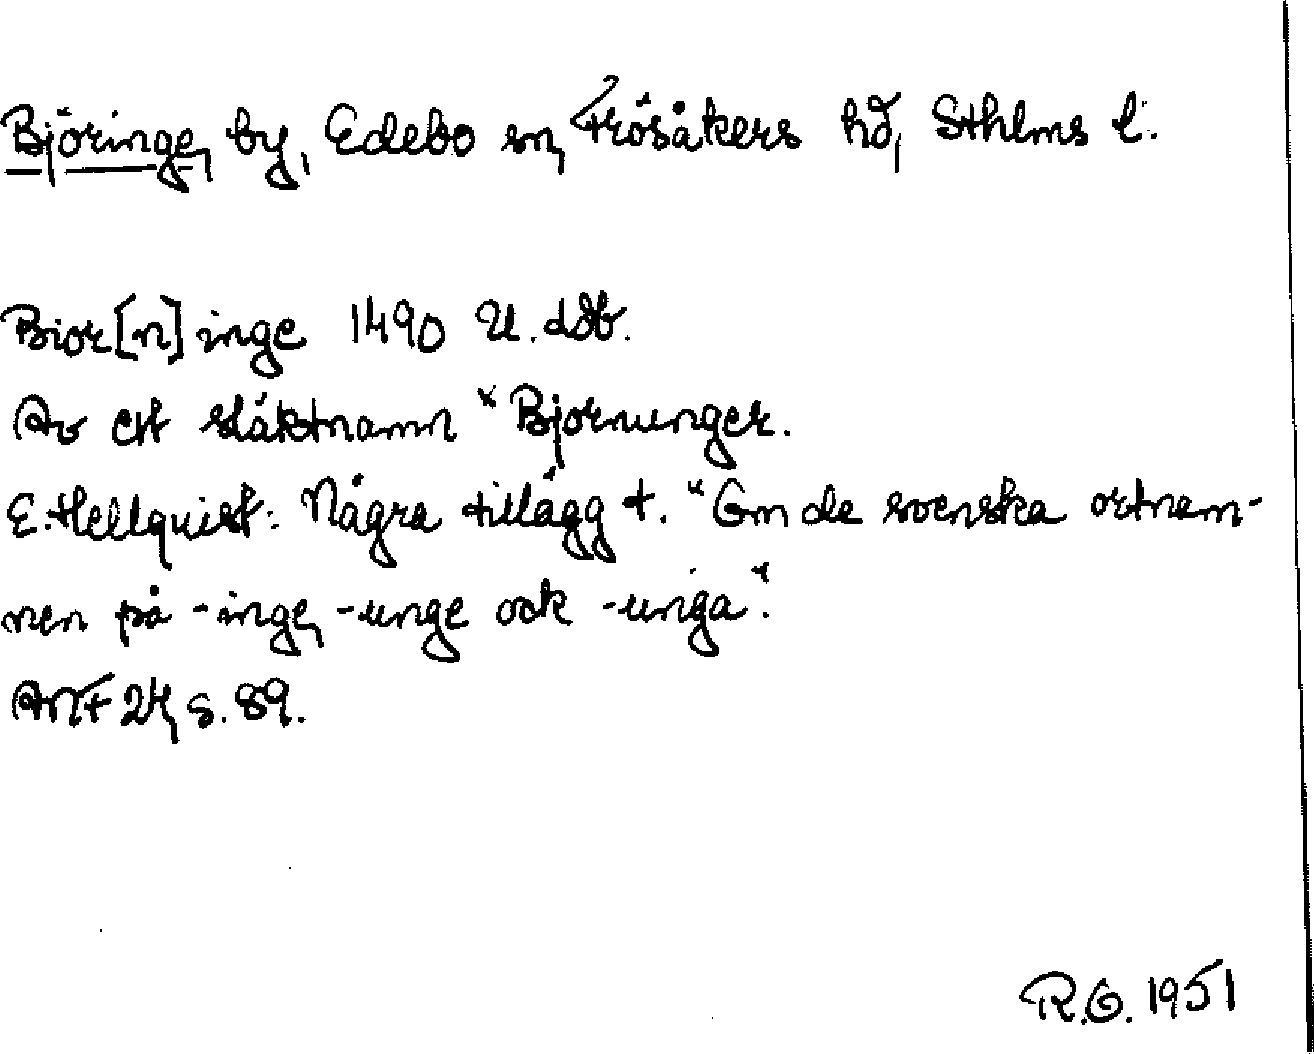 Björinge, by, Edebo sn, Frösåkers hd, Sthlms l.
Bior[n]inge 1490 U. ddb.
Av ett släktnamn *Bjornunger.
E. Hellquist: Några tillägg t. "Om de svenska ortnam-
nen på -inge, -unge ock -unga".
ANF 24, s. 89.
R.O. 1951